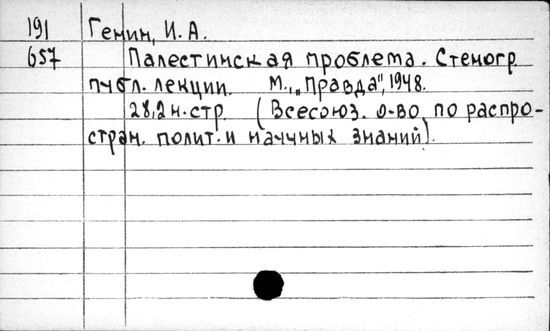 191 Генин, И. А.
657 Палестинская проблема. Стеногр
публ. лекции. М., „Правда", 1948.
28,2 н. стр. (Всесоюз. о-во по распро-
стран. полит. и научных знаний).